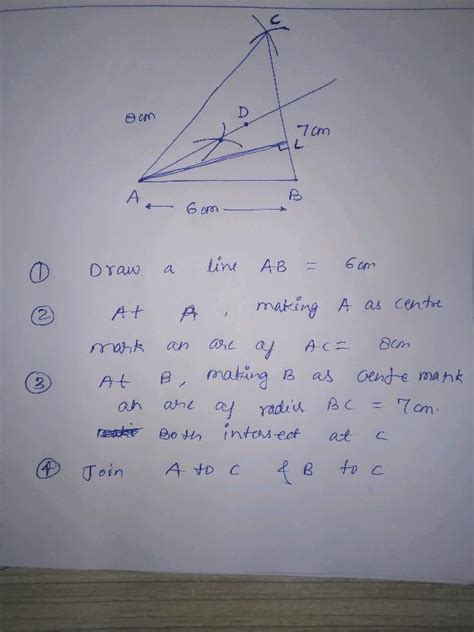 C
8cm
D
7cm
L
A
B
6cm
① Draw a line AB = 6cm
② At A, making A as centre
mark an arc of AC = 8cm
③ At B, making B as centre mark
an arc of radius BC = 7cm.
Both intersect at C
④ Join A to C & B to C